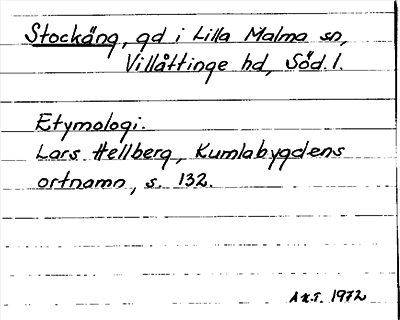 Stockäng, gd i Lilla Malma sn,
Villåttinge hd, Söd. l.
Etymologi.
Lars Hellberg, Kumlabygdens
ortnamn, s. 132.
1972